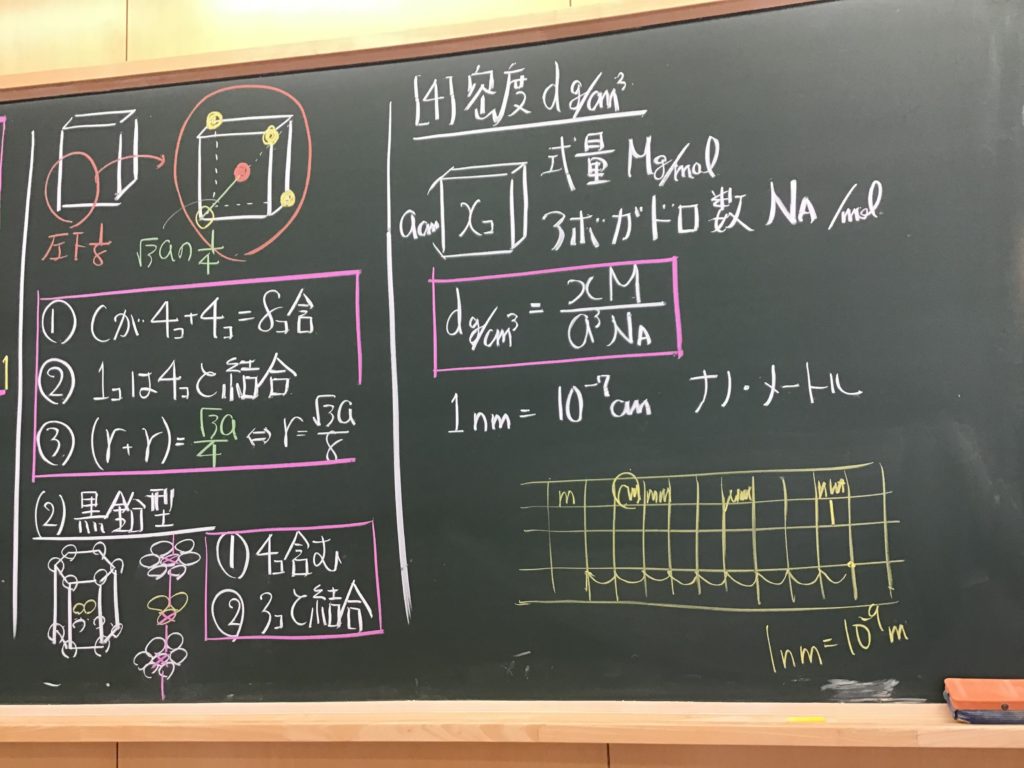 左下1/8
√3aの1/4
① Cが4コ+4コ=8コ含
② 1コは4コと結合
③ (r+r)=√3a/4 ⇔ r=√3a/8
(2) 黒鉛型
① 4コ含む
② 3コと結合
[4] 密度 d g/cm³
acm
xコ
式量 M g/mol
アボガドロ数 NA /mol
d g/cm³ = xM/a³NA
1nm = 10⁻⁷cm ナノ・メートル
m cm mm μm nm
1nm=10⁻⁹m
1